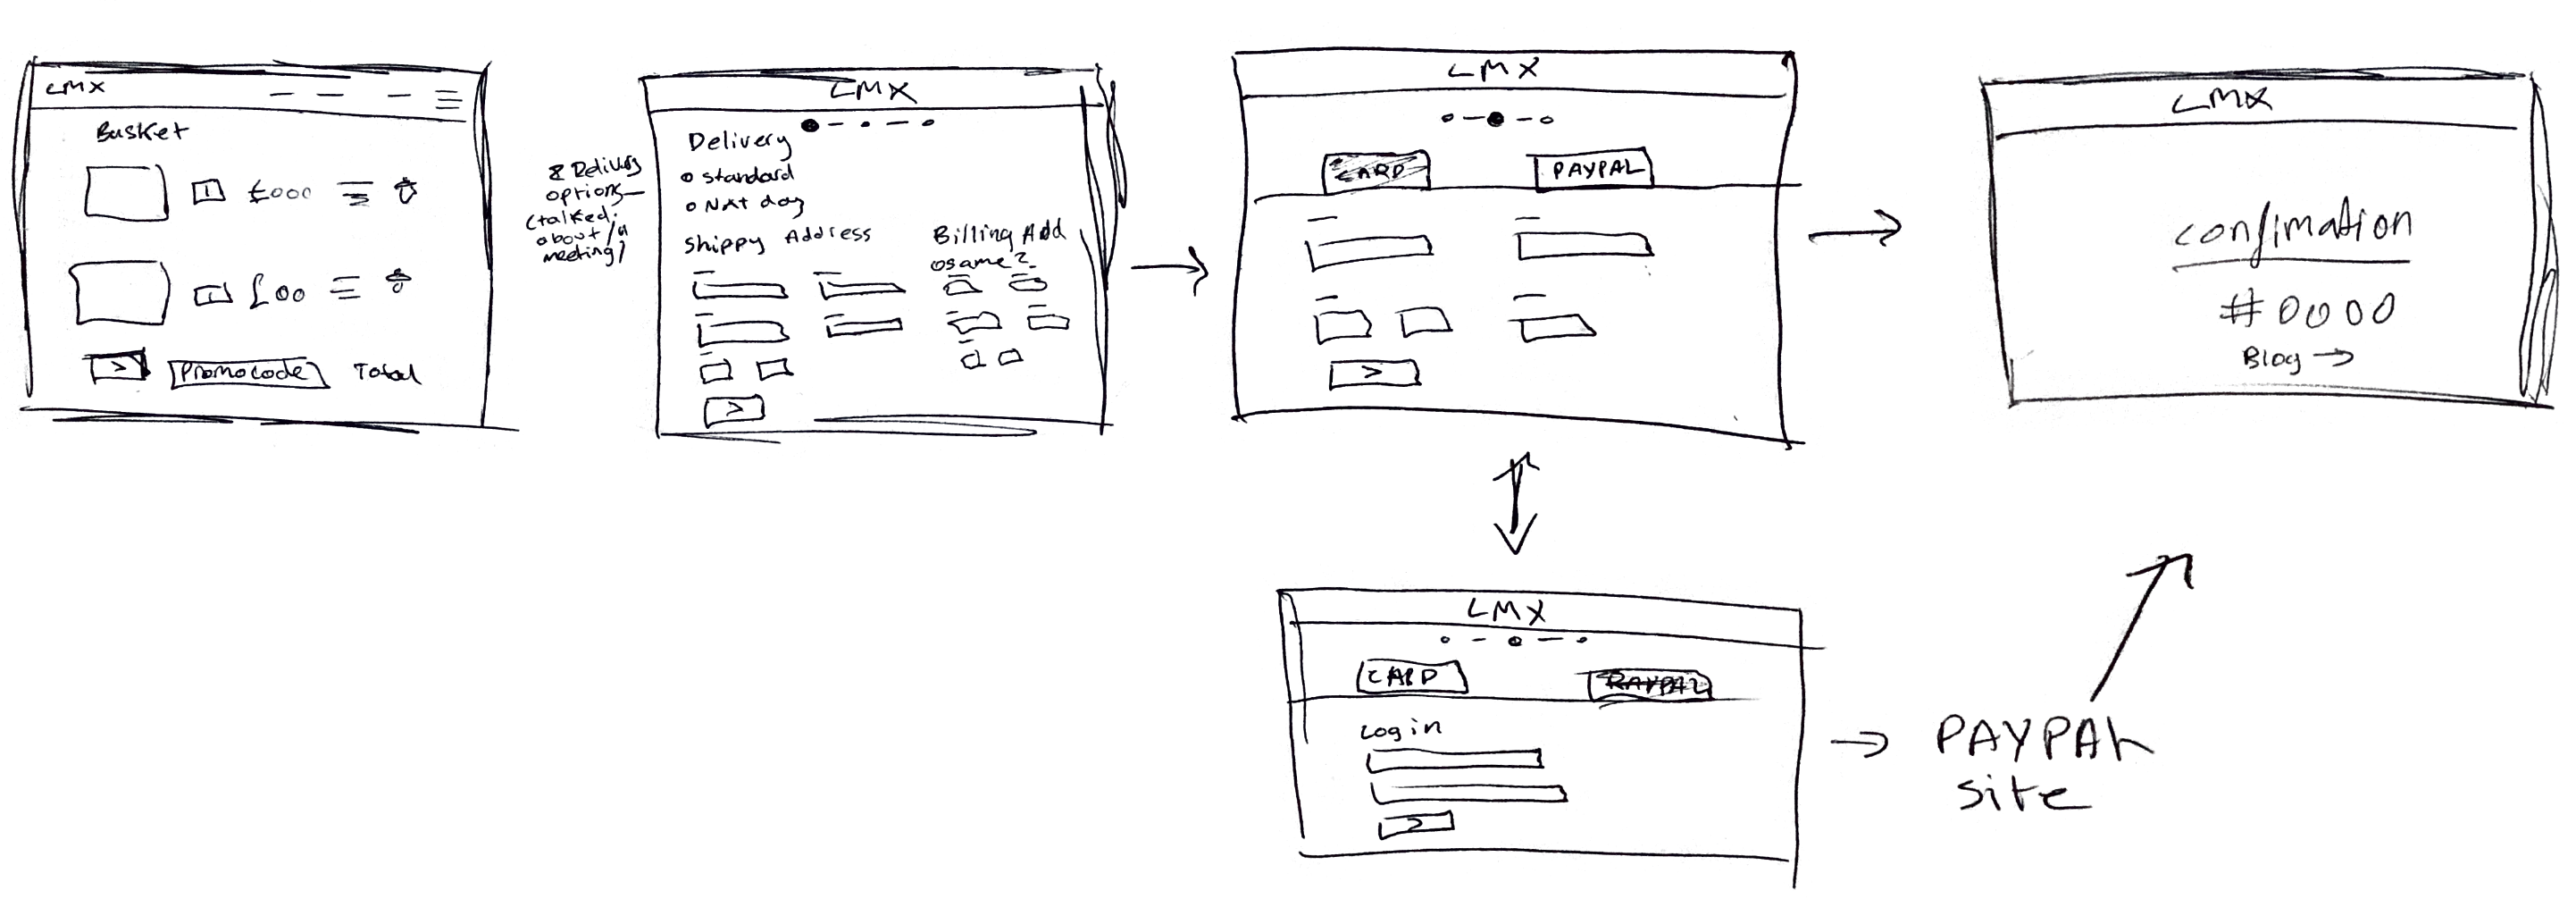 LMX
Basket
1 £000
1 £00
> Promocode Total
2 Delivery
options—
(talked
about in
meeting)
LMX
Delivery
standard
Nxt day
Shippy Address
Billing Add
same?
>
LMX
CARD PAYPAL
>
LMX
confimation
#0000
Blog →
LMX
CARD PAYPAL
Login
>
PAYPAL
site